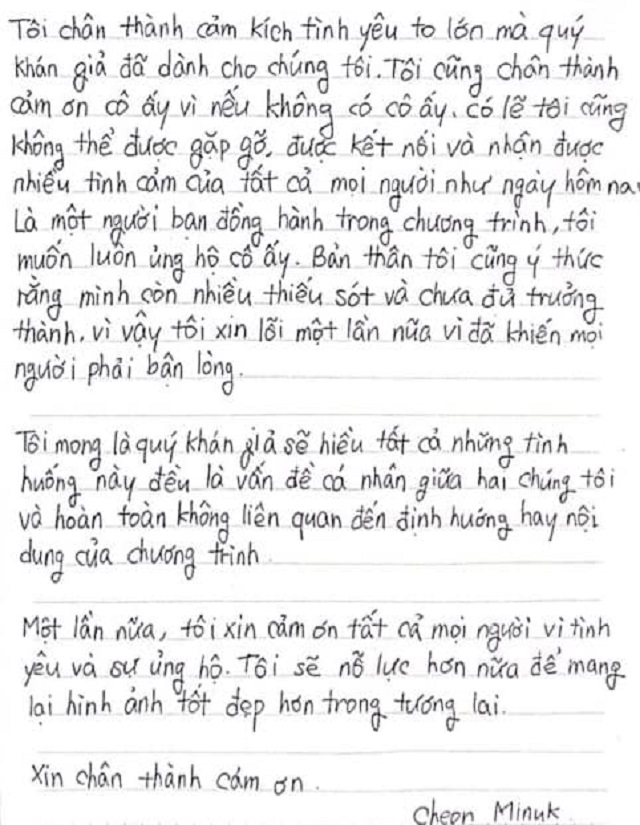 Tôi chân thành cảm kích tình yêu to lớn mà quý
khán giả đã dành cho chúng tôi. Tôi cũng chân thành
cảm ơn cô ấy vì nếu không có cô ấy, có lẽ tôi cũng
không thể được gặp gỡ, được kết nối và nhận được
nhiều tình cảm của tất cả mọi người như ngày hôm na
Là một người bạn đồng hành trong chương trình, tôi
muốn luôn ủng hộ cô ấy. Bản thân tôi cũng ý thức
rằng mình còn nhiều thiếu sót và chưa đủ trưởng
thành, vì vậy tôi xin lỗi một lần nữa vì đã khiến mọi
người phải bận lòng.
Tôi mong là quý khán giả sẽ hiểu tất cả những tình
huống này đều là vấn đề cá nhân giữa hai chúng tôi
và hoàn toàn không liên quan đến định hướng hay nội
dung của chương trình
Một lần nữa, tôi xin cảm ơn tất cả mọi người vì tình
yêu và sự ủng hộ. Tôi sẽ nỗ lực hơn nữa để mang
lại hình ảnh tốt đẹp hơn trong tương lai.
Xin chân thành cám ơn.
Cheon Minuk